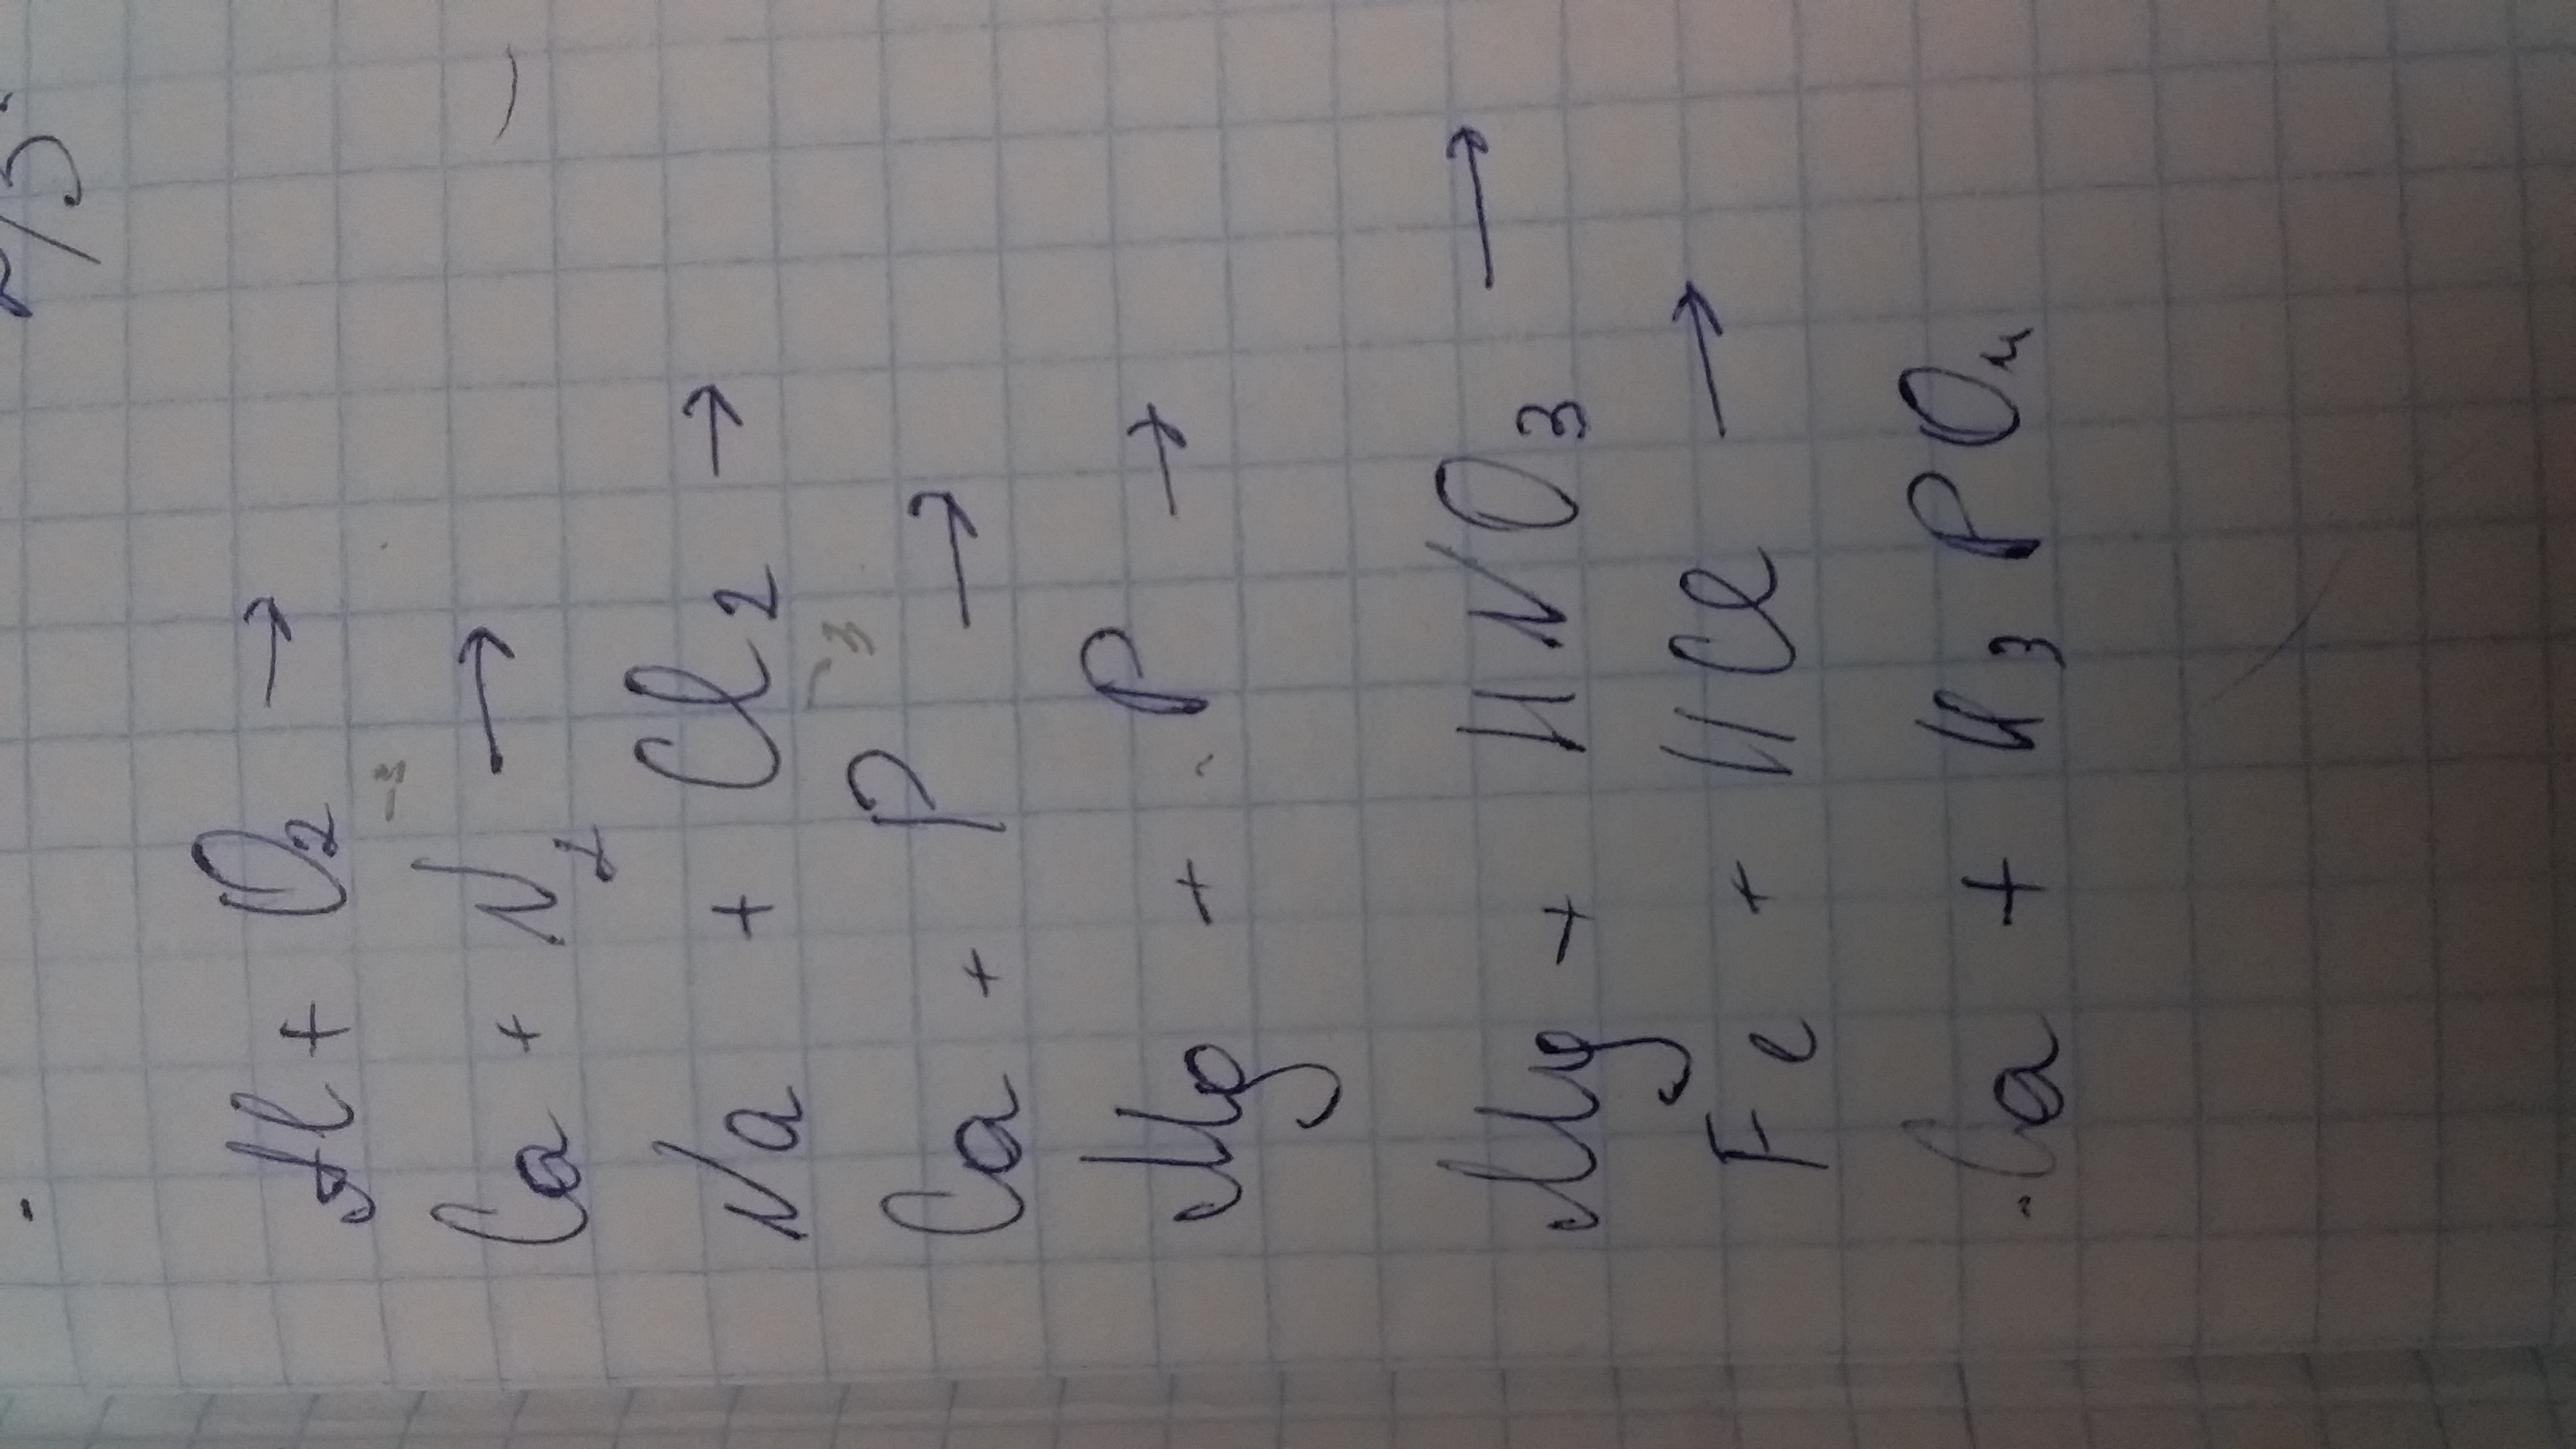 Al + O₂ →
Ca + N₂ → -3
Na + Cl₂ →
Ca + P → -3
Mg + P →
Mg + HNO₃ →
Fe + HCl →
Ca + H₃PO₄